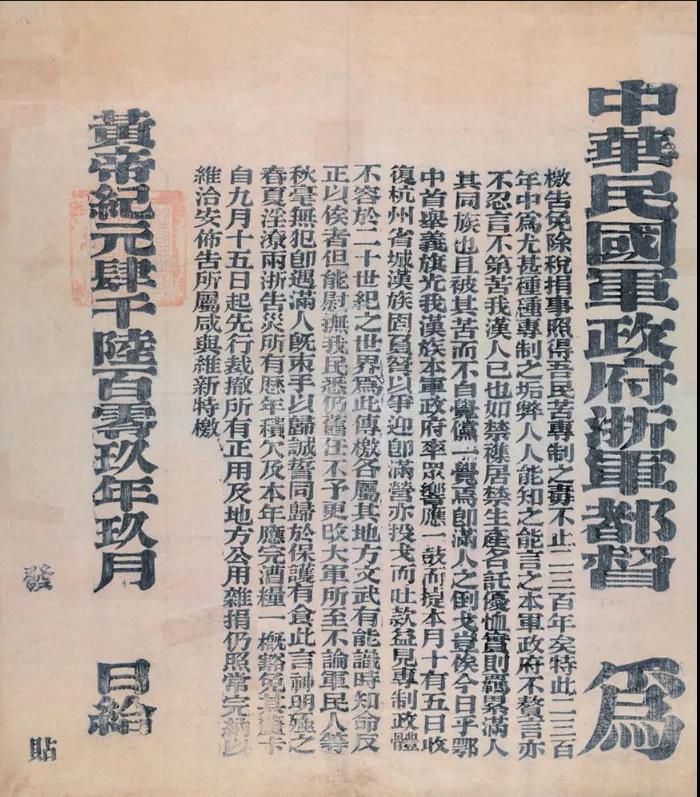 中華民國軍政府浙軍都督 爲
檄告免除稅捐事照得吾民苦專制之毒不止二三百年矣特此二三百
年中爲尤甚種種專制之垢弊人人能知之能言之本軍政府不贅言亦
不忍言不第苦我漢人已也如禁襍居禁生產名託優恤實則羈累滿人
其同族也且被其苦而不自覺儻一覺焉卽滿人之倒戈豈俟今日乎鄂
中首舉義旗光我漢族本軍政府率眾響應一鼓而捷本月十有五日收
復杭州省城漢族固簞壺以爭迎卽滿營亦投戈而吐款益見專制政體
不容於二十世紀之世界爲此傳檄各屬其地方文武有能識時知命反
正以俟者但能慰撫我民悉仍舊任不予更改大軍所至不論軍民人等
秋毫無犯卽遇滿人旣束手以歸誠誓同歸於保護有食此言神明殛之
春夏淫潦兩浙告災所有歷年積欠及本年應完漕糧一槪豁免其釐卡
自九月十五日起先行裁撤所有正用及地方公用雜捐仍照常完納以
維治安佈告所屬咸與維新特檄
黃帝紀元肆千陸百零玖年玖月 日給
發 貼